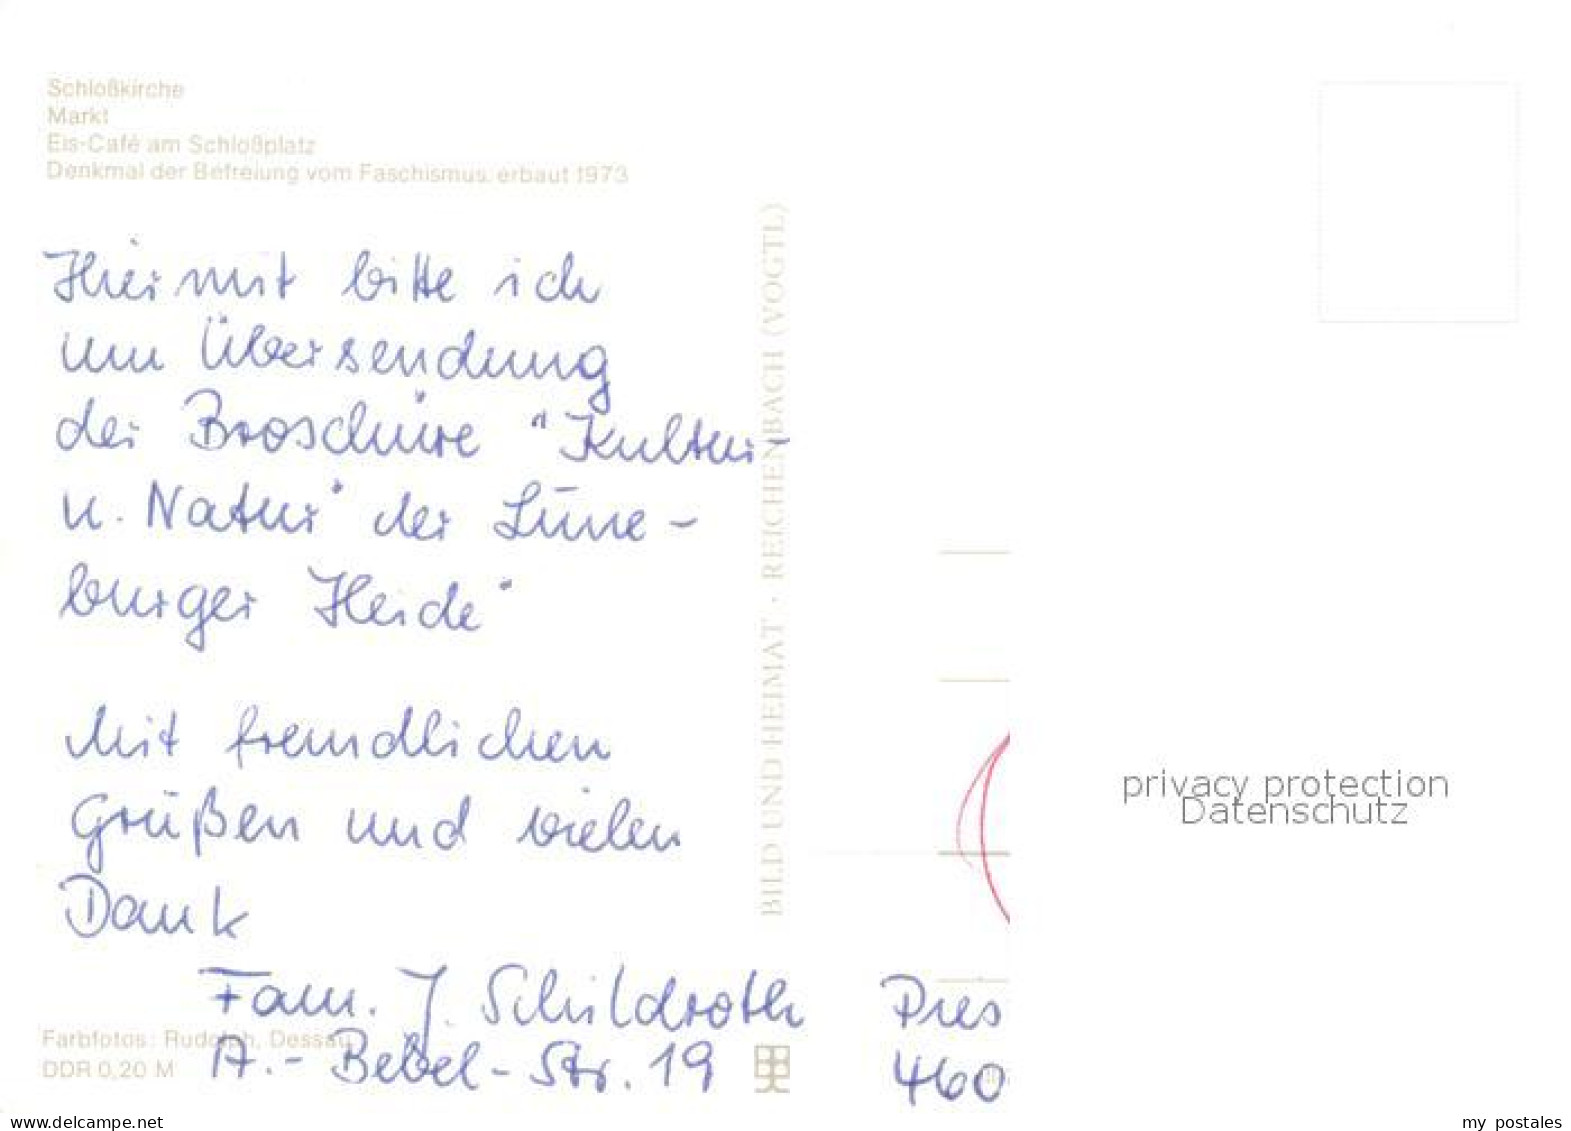 Schloßkirche
Markt
Eis-Café am Schloßplatz
Denkmal der Befreiung vom Faschismus, erbaut 1973
Hiermit bitte ich
um Übersendung
der Broschüre "Kultur-
u. Natur" der Lüne-
burger Heide"
Mit freundlichen
Grüßen und vielen
Dank
Fam. J. Schildroth
A.-Bebel-Str. 19
Pres
460
Farbfotos: Rudolph, Dessau
DDR 0,20 M
BILD UND HEIMAT · REICHENBACH (VOGTL)
privacy protection
Datenschutz
www.delcampe.net
my_postales